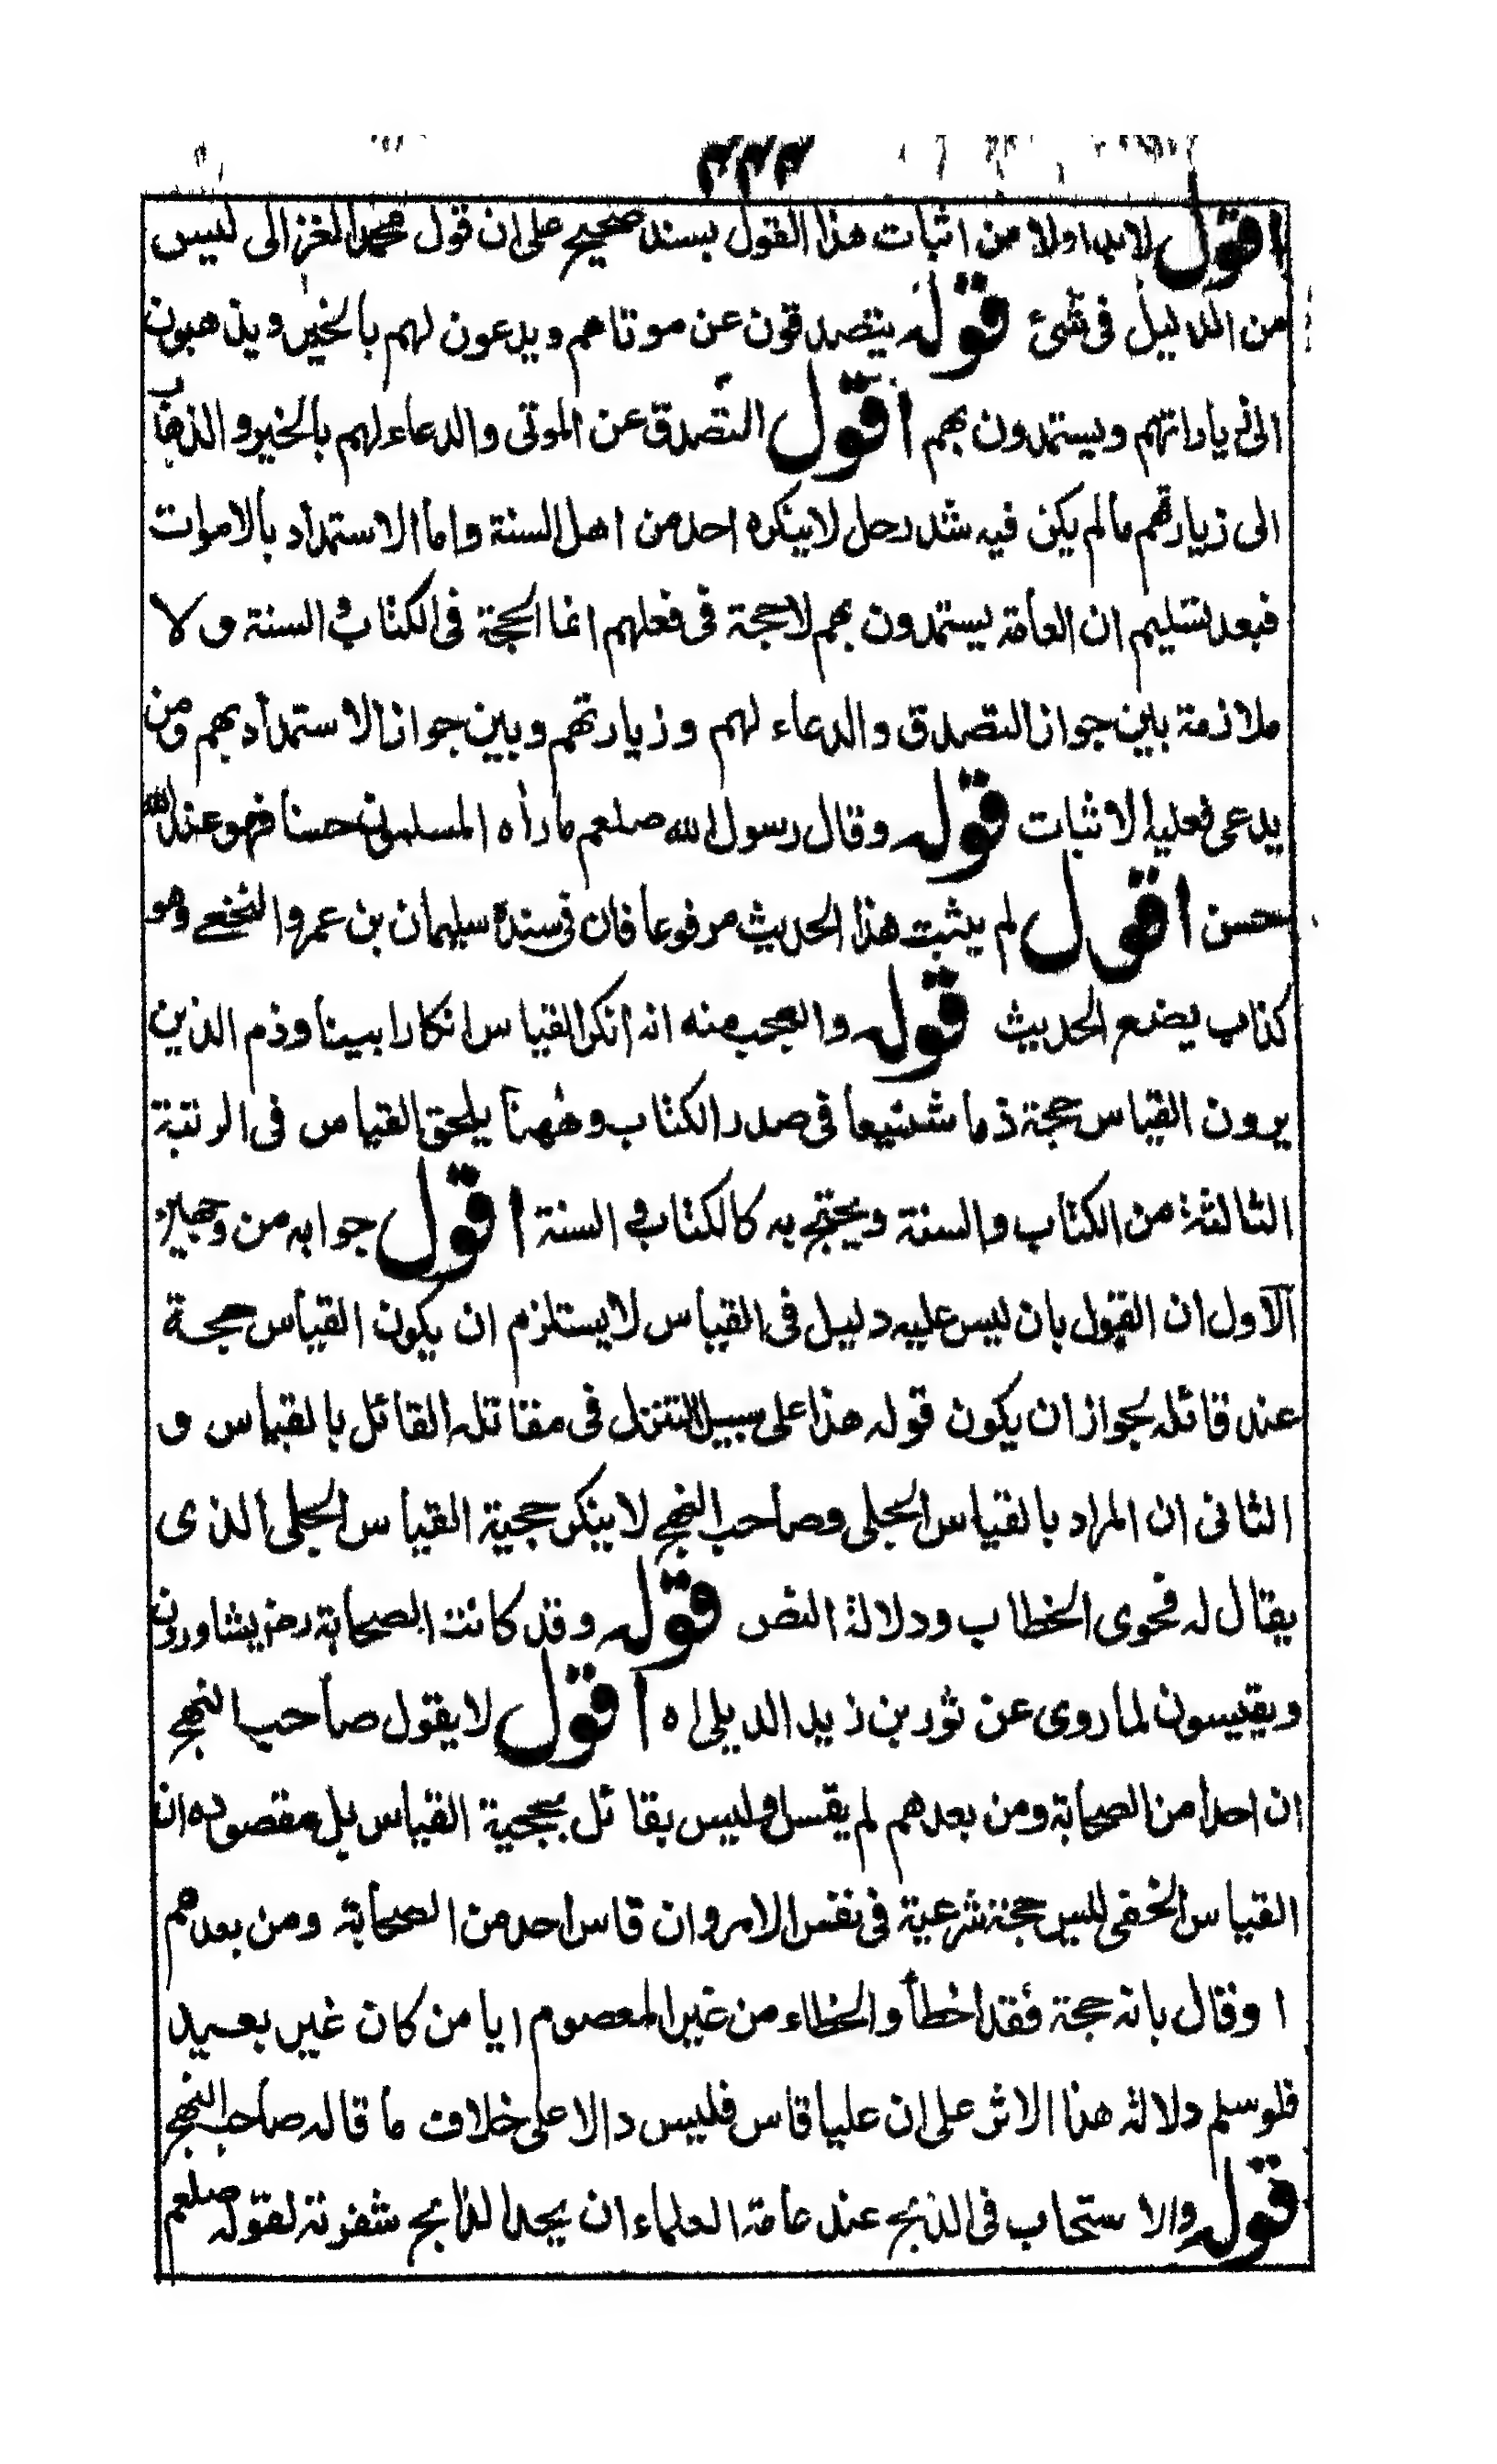 اقول لابد اولا من اثبات هذا القول بسند صحيح على ان قول محمد الغزالى ليس
من الدليل فى شئ قوله يتصدقون عن موتاهم ويدعون لهم بالخير ويذهبون
الى زياراتهم ويستمدون بهم اقول التصدق عن الموتى والدعاء لهم بالخير والذهاب
الى زيارتهم مالم يكن فيه شد رحل لا ينكره احد من اهل السنة واما الاستمداد بالاموات
فبعد تسليم ان العامة يستمدون بهم لا حجة فى فعلهم انما الحجة فى الكتاب والسنة ولا
ملازمة بين جواز التصدق والدعاء لهم وزيارتهم وبين جواز الاستمداد بهم ومن
يدعى فعليه الاثبات قوله وقال رسول الله صلعم ما رأه المسلمون حسنا فهو عند الله
حسن اقول لم يثبت هذا الحديث مرفوعا فان فى سنده سليمان بن عمرو النخعى وهو
كذاب يضع الحديث قوله والعجب منه انه انكر القياس انكارا بينا وذم الذين
يرون القياس حجة ذما شنيعا فى صدر الكتاب وههنا يلحق القياس فى الرتبة
الثالثة من الكتاب والسنة ويحتج به كالكتاب والسنة اقول جوابه من وجهين
الاول ان القول بان ليس عليه دليل فى القياس لا يستلزم ان يكون القياس حجة
عند قائله لجواز ان يكون قوله هذا على سبيل التنزل فى مقاتله القائل بالقياس و
الثانى ان المراد بالقياس الجلى وصاحب النهج لا ينكر حجية القياس الجلى الذى
يقال له فحوى الخطاب ودلالة النص قوله وقد كانت الصحابة رض يشاورون
ويقيسون لما روى عن ثور بن زيد الديلى اه اقول لا يقول صاحب النهج
ان احدا من الصحابة ومن بعدهم لم يقس وليس بقائل بحجية القياس بل مقصوده ان
القياس الخفى ليس حجة شرعية فى نفس الامر وان قاس احد من الصحابة ومن بعدهم
او قال بانه حجة فقد اخطأ والخطاء من غير المعصوم ايا من كان غير بعيد
فلو سلم دلالة هذا الاثر على ان عليا قاس فليس دالا على خلاف ما قاله صاحب النهج
قوله والاستحاب فى الذبح عند عامة العلماء ان يحد الذابح شفرته لقوله صلعم